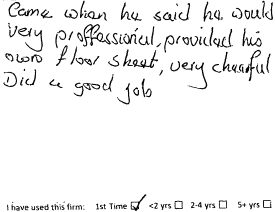 Came when he said he would
very proffessional, provided his
own floor sheet, very chearful
Did a good job
I have used this firm: 1st Time ☑ <2 yrs ☐ 2-4 yrs ☐ 5+ yrs ☐